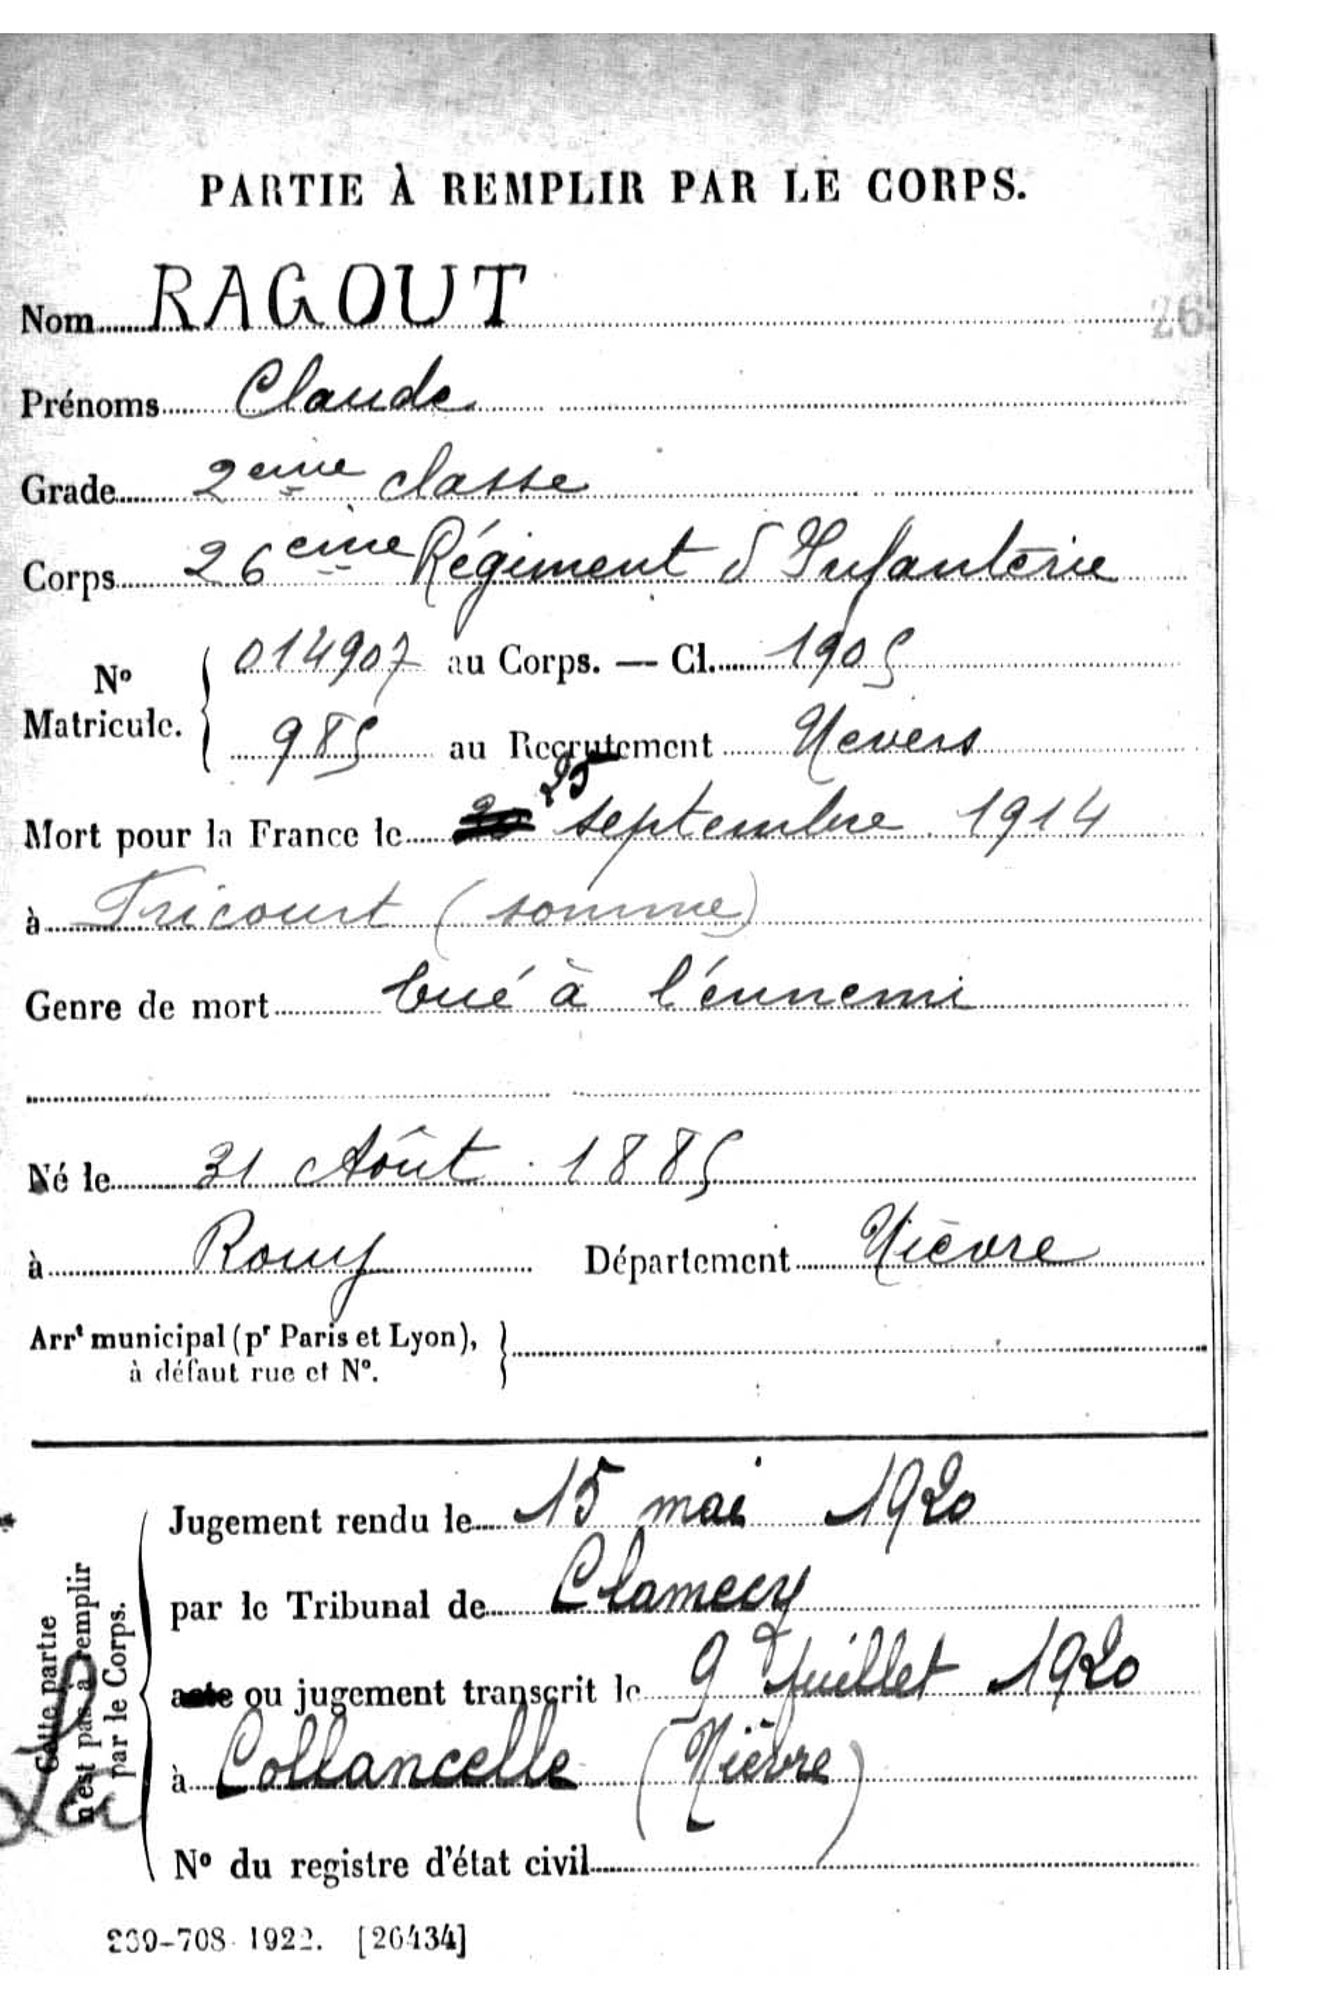 PARTIE À REMPLIR PAR LE CORPS.
Nom RAGOUT
26
Prénoms Claude
Grade 2eme classe
Corps 26eme Régiment d'Infanterie
N° Matricule. 014907 au Corps. — Cl. 1905
985 au Recrutement Nevers
25
Mort pour la France le septembre 1914
à Fricourt (somme)
Genre de mort tué à l'énnemi
Né le 31 Août 1885
à Rouy Département Nièvre
Arrt municipal (pr Paris et Lyon),
à défaut rue et N°.
Cette partie
n'est pas à remplir
par le Corps.
Jugement rendu le 15 mai 1920
par le Tribunal de Clamecy
acte ou jugement transcrit le 9 Juillet 1920
à La Collancelle (Nièvre)
N° du registre d'état civil
269-708 1922. [26434]